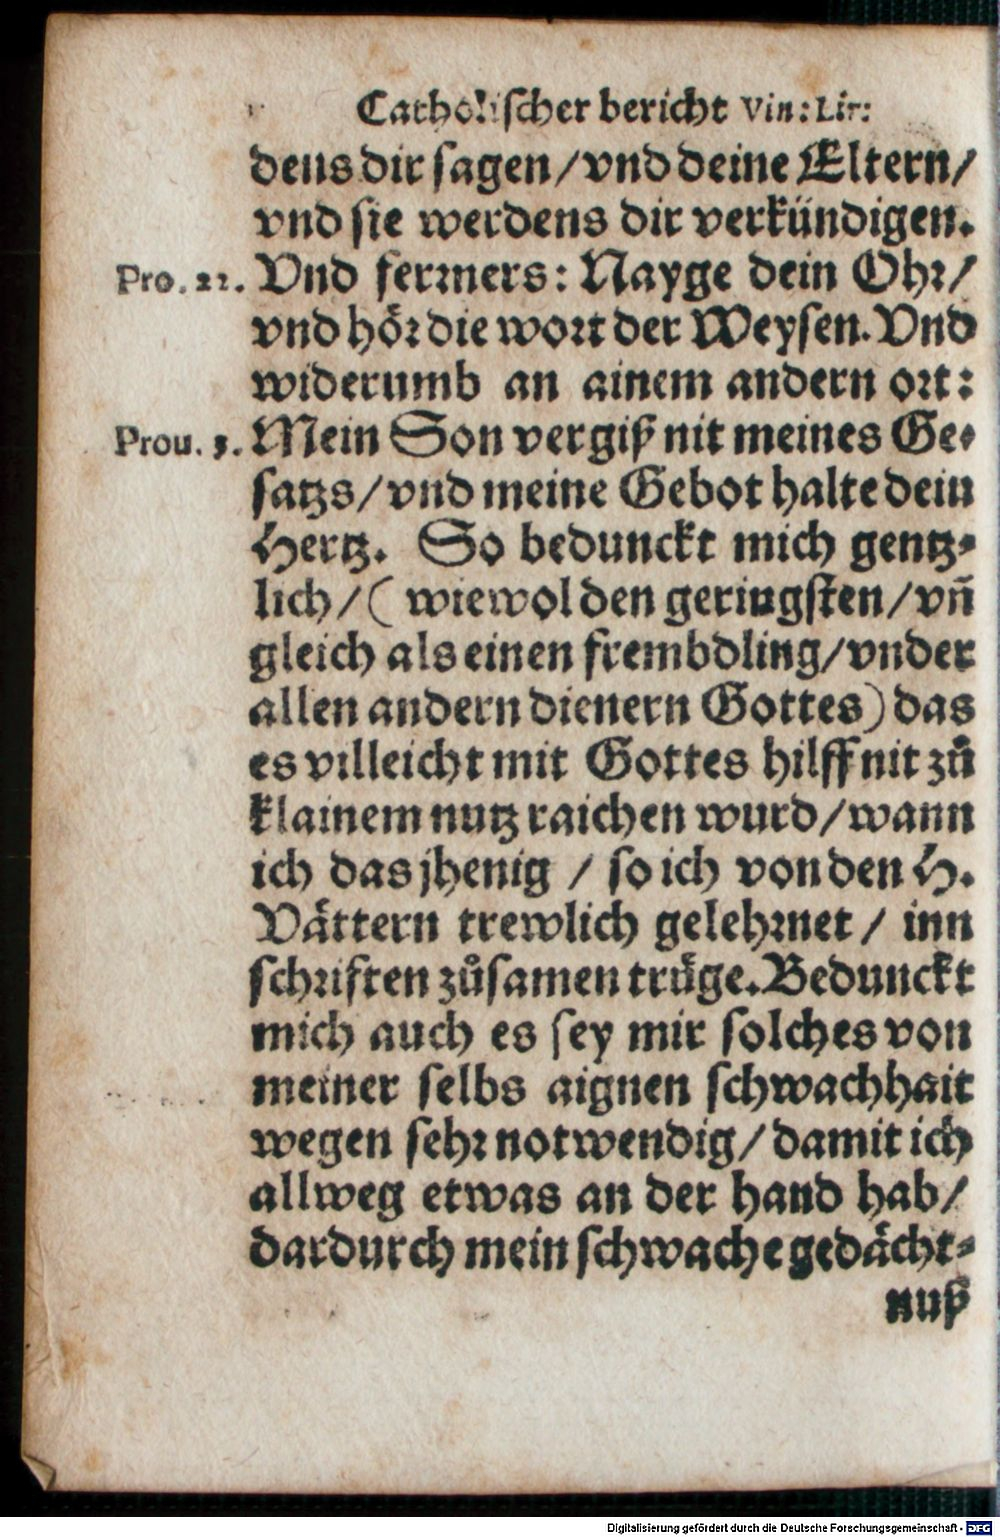 Catholischer bericht Vin: Lir:
dens dir sagen / vnd deine Eltern /
vnd sie werdens dir verkündigen.
Pro. 22. Vnd ferrners: Nayge dein Ohr /
vnd hör die wort der Weysen. Vnd
widerumb an ainem andern ort:
Prou. 3. Mein Son vergiß nit meines Ge-
satzs / vnd meine Gebot halte dein
Hertz. So bedunckt mich gentz-
lich / ( wiewol den geringsten / vñ
gleich als einen frembdling / vnder
allen andern dienern Gottes) das
es villeicht mit Gottes hilff nit zů
klainem nutz raichen wurd / wann
ich das jhenig / so ich von den H.
Vättern trewlich gelehrnet / inn
schriften zůsamen trüge. Bedunckt
mich auch es sey mir solches von
meiner selbs aignen schwachhait
wegen sehr notwendig / damit ich
allweg etwas an der hand hab /
dardurch mein schwache gedächt-
nuß
Digitalisierung gefördert durch die Deutsche Forschungsgemeinschaft - DFG